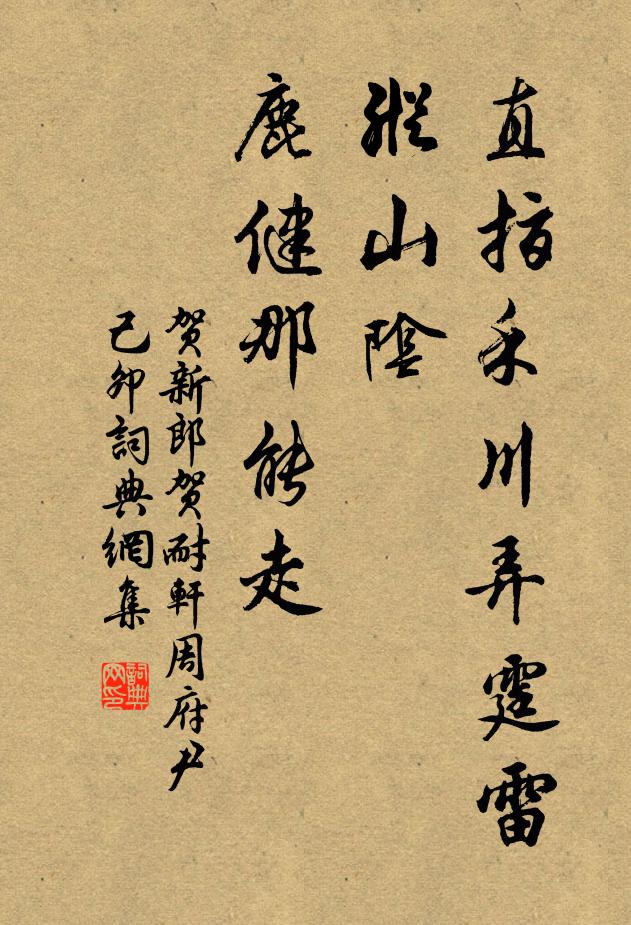 直指禾川弄霆雷
縱山陰
鹿健那能走
贺新郎贺耐軒周府尹
己卯詞典網集
詞典网印